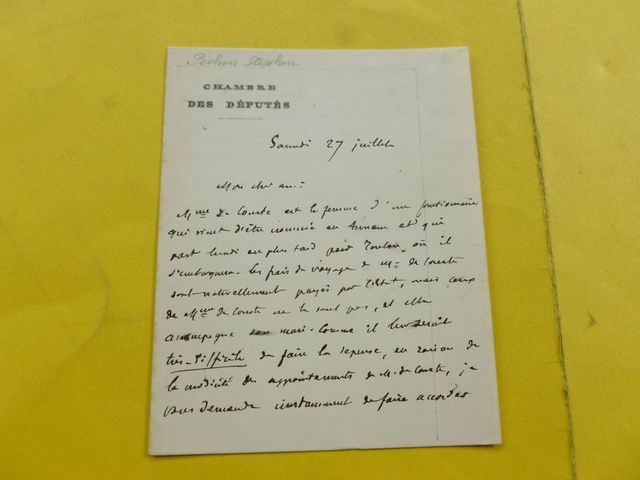 Pichon Stephen
CHAMBRE
DES DÉPUTÉS
Samedi 27 juillet
Mon cher ami:
Mme de Courte est la femme d'un fonctionnaire
qui vient d'être nommé en Annam et qui
part lundi au plus tard pour Toulon, où il
s'embarquera. Les frais de voyage de M. de Courte
sont naturellement payés par l'Etat, mais ceux
de Mme de Courte ne le sont pas, et elle
accompagne son mari. Comme il leur serait
très-difficile de faire la dépense, en raison de
la modicité des appointements de M. de Courte, je
vous demande instamment de faire accorder